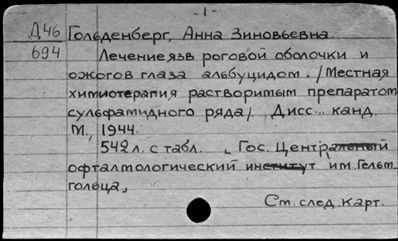 - 1 -
Д46 Гольденберг, Анна Зиновьевна
694 Лечение язв роговой оболочки и
ожогов глаза альбуцидом. /Местная
химиотерапия растворимым препаратом
сульфамидного ряда/. Дисс... канд.
М., 1944.
542 л. с табл. „Гос. Центральный
офталмологический институт им. Гельм-
гольца„
См. след. карт.